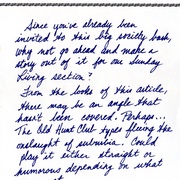 Since you've already been
invited to this big society bash,
why not go ahead and make a
story out of it for our Sunday
Living section?
From the looks of this article,
there may be an angle that
hasn't been covered. Perhaps...
The Old Hunt Club types fleeing the
onslaught of suburbia. Could
play it either straight or
humorous depending on what